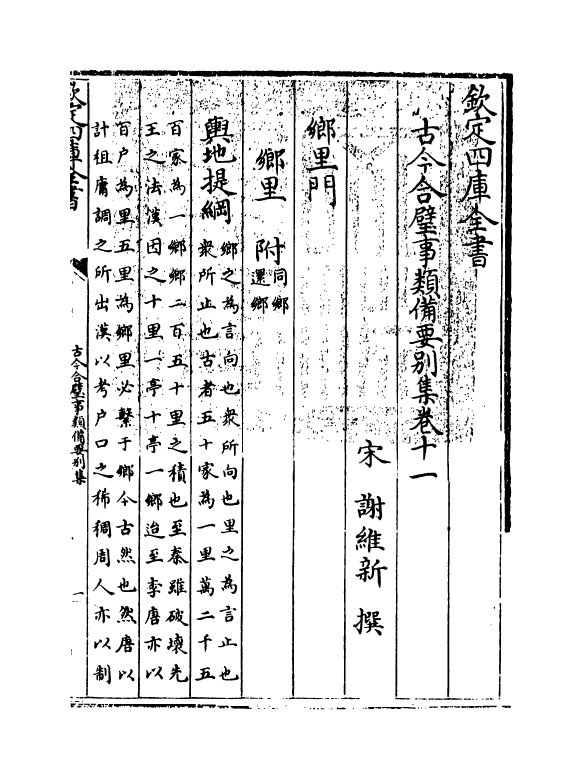 欽定四庫全書
古今合璧事類備要別集卷十一
宋 謝維新 撰
鄉里門
鄉里 附同鄉
還鄉
輿地提綱 鄉之為言向也衆所向也里之為言止也
衆所止也古者五十家為一里萬二千五
百家為一鄉鄉二百五十里之積也至秦雖破壞先
王之法漢因之十里一亭十亭一鄉迨至李唐亦以
百户為里五里為鄉里必繫于鄉今古然也然唐以
計租庸調之所出漢以考户口之稀稠周人亦以制
欽定四庫全書
古今合璧事類備要別集
一